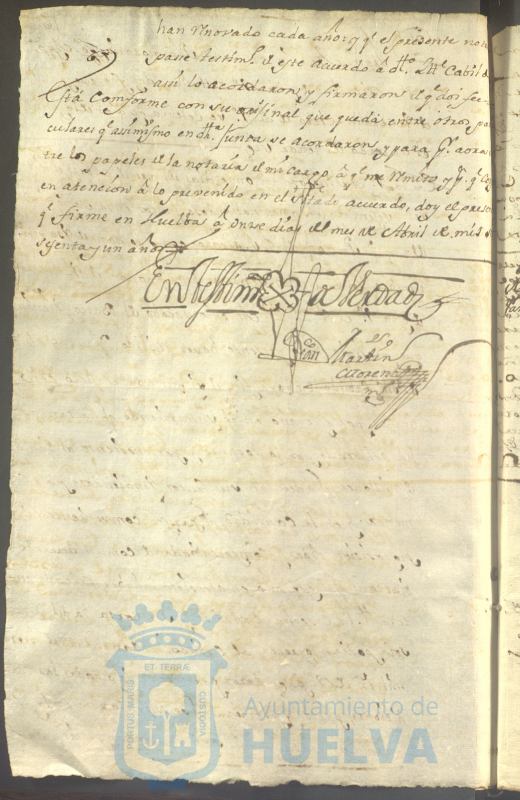 han renovado cada año: y q.e el presente not.
pase testim.o de este acuerdo a d.ho Ill.e Cabil.do
así lo acordaron y firmaron de q.e doi fee=
Está comforme con su original que queda entre otros par
culares q.e asimismo en d.ha Junta se acordaron, y para p.r aora
tre los papeles de la notaría de mi cargo, a q.e me remito y p.a q.e
en atención a lo prevenido en el de acuerdo, doy el prese
q.e firme en Huelba a onse dias del mes de Abril de mil s
sesenta y un años
En testim.o de Verdad
Fran.co Martín
ET TERRÆ
PORTUS MARIS
CUSTODIA
Ayuntamiento de
HUELVA